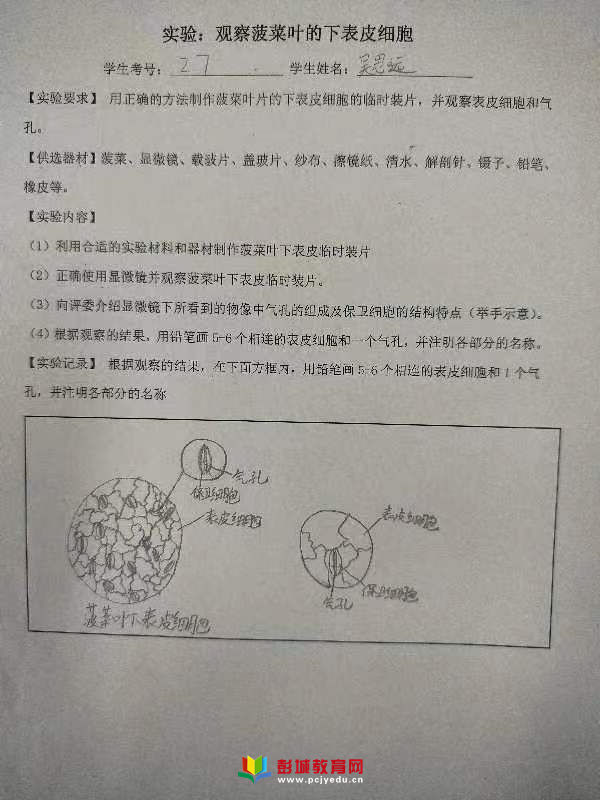 实验：观察菠菜叶的下表皮细胞
学生考号： 27 . 学生姓名：吴思
【实验要求】 用正确的方法制作菠菜叶片的下表皮细胞的临时装片，并观察表皮细胞和气
孔。
【供选器材】菠菜、显微镜、载玻片、盖玻片、纱布、擦镜纸、清水、解剖针、镊子、铅笔、
橡皮等。
【实验内容】
（1）利用合适的实验材料和器材制作菠菜叶下表皮临时装片
（2）正确使用显微镜并观察菠菜叶下表皮临时装片。
（3）向评委介绍显微镜下所看到的物像中气孔的组成及保卫细胞的结构特点（举手示意）。
（4）根据观察的结果，用铅笔画5-6个相连的表皮细胞和一个气孔，并注明各部分的名称。
【实验记录】 根据观察的结果，在下面方框内，用铅笔画5-6个相连的表皮细胞和1个气
孔，并注明各部分的名称
气孔
保卫细胞
表皮细胞
菠菜叶下表皮细胞
表皮细胞
保卫细胞
气孔
彭城教育网
www.pcjyedu.cn